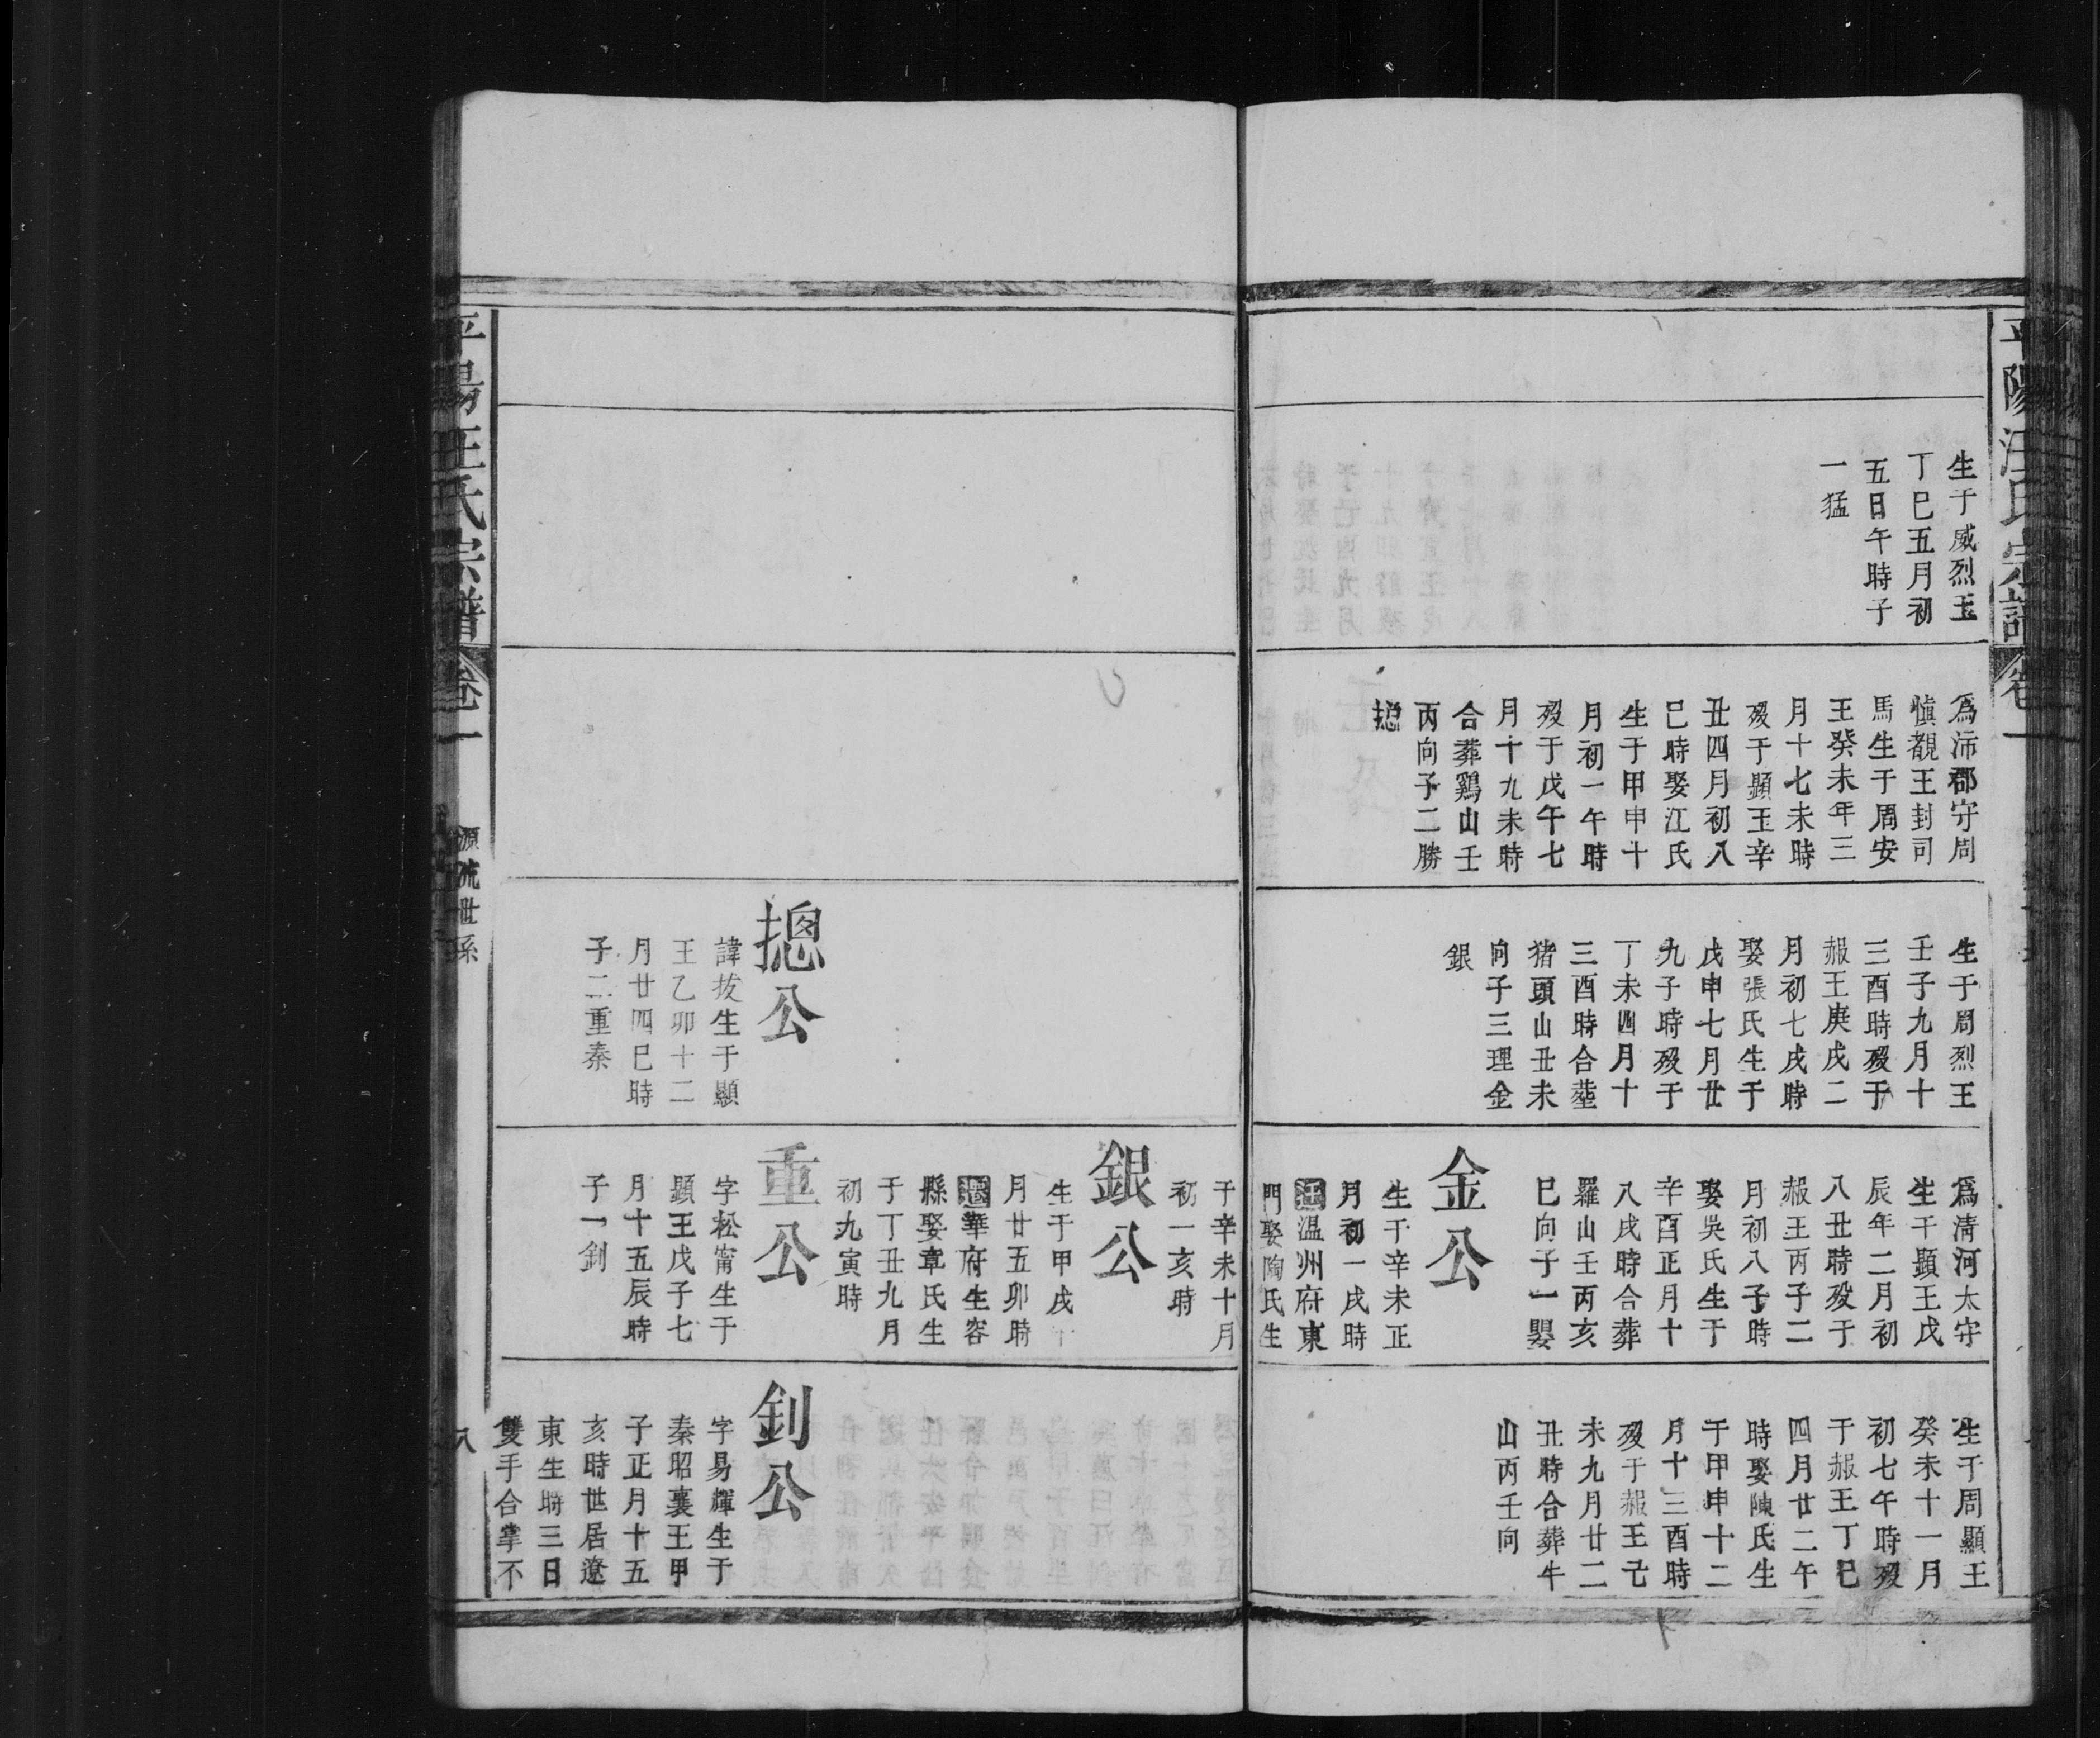 平陽汪氏宗譜
卷一
生于威烈王
丁巳五月初
五日午時子
一猛
爲沛郡守周
慎靚王封司
馬生于周安
王癸未年三
月十七未時
歿于顯王辛
丑四月初八
巳時娶江氏
生于甲申十
月初一午時
歿于戊午七
月十九未時
合葬鷄山壬
丙向子二勝
摠
生于周烈王
壬子九月十
三酉時歿于
赧王庚戌二
月初七戌時
娶張氏生于
戊申七月廿
九子時歿于
丁未四月十
三酉時合塟
猪頭山丑未
向子三理金
銀
爲清河太守
生于顯王戊
辰年二月初
八丑時歿于
赧王丙子二
月初八子時
娶吳氏生于
辛酉正月十
八戌時合葬
羅山壬丙亥
巳向子一嬰
金公
生于辛未正
月初一戌時
溫州府東
門娶陶氏生
生于周顯王
癸未十一月
初七午時歿
于赧王丁巳
四月廿二午
時娶陳氏生
于甲申十二
月十三酉時
歿于赧王己
未九月廿二
丑時合葬牛
山丙壬向
于辛未十月
初一亥時
銀公
生于甲戌十
月廿五卯時
華府生容
縣娶章氏生
于丁丑九月
初九寅時
摠公
諱拔生于顯
王乙卯十二
月廿四巳時
子二重秦
重公
字松甯生于
顯王戊子七
月十五辰時
子一釗
釗公
字易輝生于
秦昭襄王甲
子正月十五
亥時世居遼
東生時三日
雙手合掌不
平陽汪氏宗譜
卷一
源流世系
八